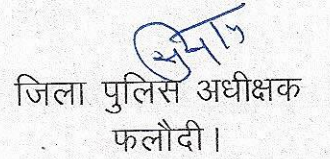 जिला पुलिस अधीक्षक
फलौदी।